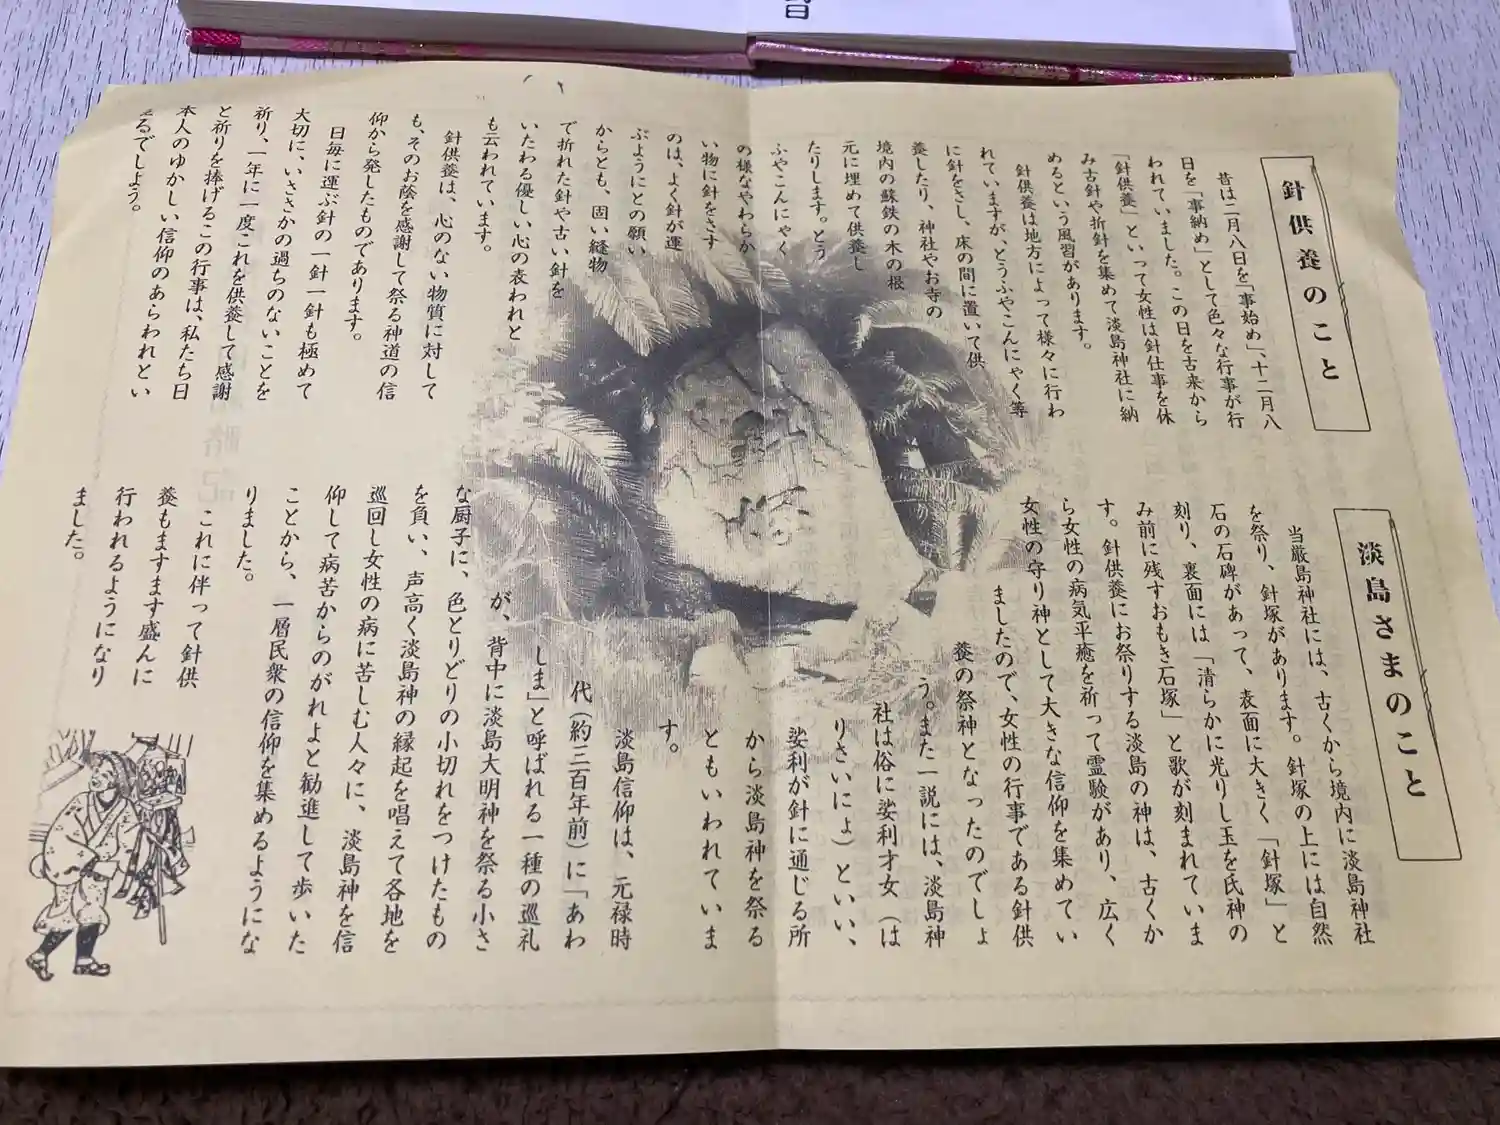 針供養のこと
昔は二月八日を「事始め」、十二月八
日を「事納め」として色々な行事が行
われていました。この日を古来から
「針供養」といって女性は針仕事を休
み古針や折針を集めて淡島神社に納
めるという風習があります。
針供養は地方によって様々に行わ
れていますが、とうふやこんにゃく等
に針をさし、床の間に置いて供
養したり、神社やお寺の
境内の蘇鉄の木の根
元に埋めて供養し
たりします。とう
ふやこんにゃく
の様なやわらか
い物に針をさす
のは、よく針が運
ぶようにとの願い
からとも、固い縫物
で折れた針や古い針を
いたわる優しい心の表われと
も云われています。
針供養は、心のない物質に対して
も、そのお蔭を感謝して祭る神道の信
仰から発したものであります。
日毎に運ぶ針の一針一針も極めて
大切に、いささかの過ちのないことを
祈り、一年に一度これを供養して感謝
と祈りを捧げるこの行事は、私たち日
本人のゆかしい信仰のあらわれとい
えるでしょう。
淡島さまのこと
当厳島神社には、古くから境内に淡島神社
を祭り、針塚があります。針塚の上には自然
石の石碑があって、表面に大きく「針塚」と
刻り、裏面には「清らかに光りし玉を氏神の
み前に残すおもき石塚」と歌が刻まれていま
す。針供養にお祭りする淡島の神は、古くか
ら女性の病気平癒を祈って霊験があり、広く
女性の守り神として大きな信仰を集めてい
ましたので、女性の行事である針供
養の祭神となったのでしょ
う。また一説には、淡島神
社は俗に娑利才女(は
りさいにょ)といい、
娑利が針に通じる所
から淡島神を祭る
ともいわれていま
す。
淡島信仰は、元禄時
代(約三百年前)に「あわ
しま」と呼ばれる一種の巡礼
が、背中に淡島大明神を祭る小さ
な厨子に、色とりどりの小切れをつけたもの
を負い、声高く淡島神の縁起を唱えて各地を
巡回し女性の病に苦しむ人々に、淡島神を信
仰して病苦からのがれよと勧進して歩いた
ことから、一層民衆の信仰を集めるようにな
りました。
これに伴って針供
養もますます盛んに
行われるようになり
ました。